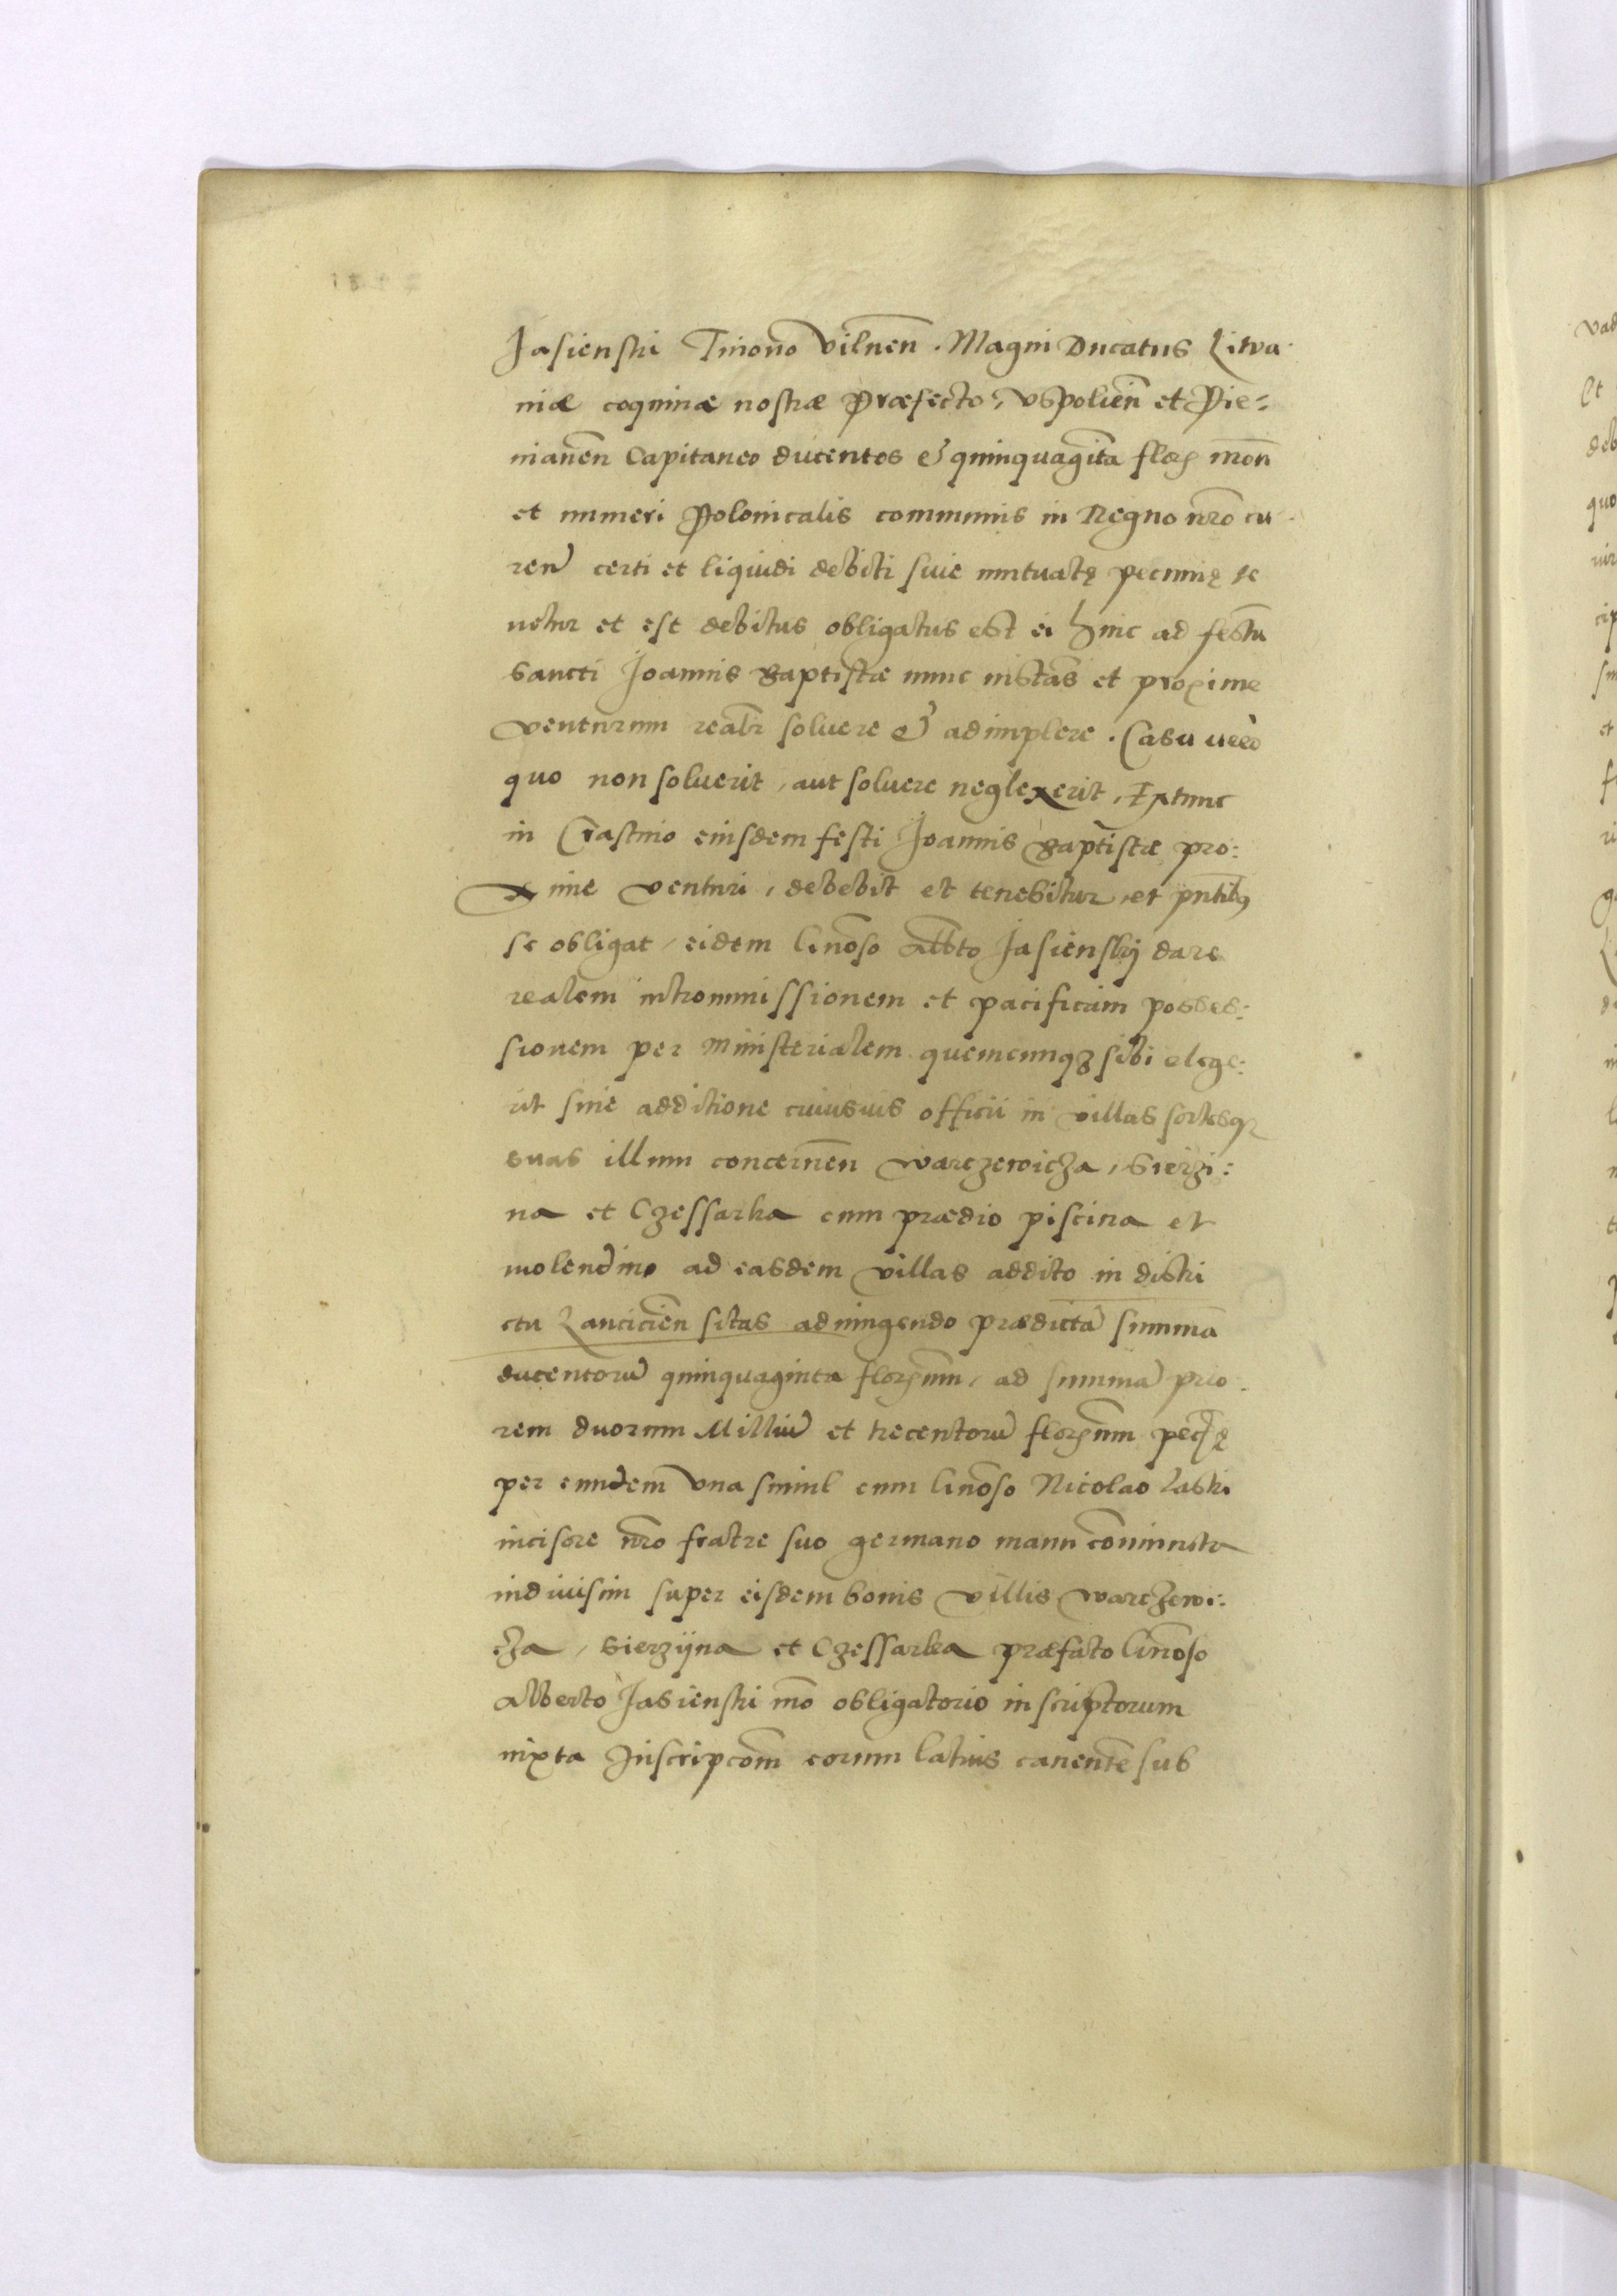 Jasienski Tiuono Vilnen̄. Magni Ducatus Litua
niæ coquinæ nostræ Præfecto, Vspolien̄ et Pie=
nianen̄ Capitaneo ducentos & quinquagīta floꝝ mon̄
et numeri Polonicalis communis in Regno nr̄o cu
ren̄ certi et liquidi debiti siue mutuatę pecunię te
netur et est debitus obligatus est ei hinc ad festū
Sancti Joannis Baptistæ nunc instās et proxime
venturum realr̄ soluere & adimplere. Casu uerò
quo non soluerit, aut soluere neglexerit, Extunc
in Crastino eiusdem festi Joannis Baptistæ pro:
xime venturi, debebit et tenebitur, et pn̄tibꝰ
se obligat, eidem Gn̄oso Alb̄to Jasienskij dare
realem intromissionem et pacificam posses:
sionem per Ministerialem quemcunqꝫ sibi elege:
rit sine additione cuiusuis officii in villas sortesqꝫ
suas illum concernen̄ Warczewicza, Sierzi:
na et Czessarka cum prædio piscina et
molendino ad easdem villas addito in distri
ctu Lancicien̄ sitas adiungendo prædictā summā
ducentorū quinquaginta floꝝnum, ad summā prio
rem duorum Milliū et trecentorū floꝝnum pec̄ię
per eundem vna simul cum Gn̄oso Nicolao Laski
incisore nr̄o fratre suo germano manu cōniuncta
indiuisim super eisdem bonis villis Warczewi:
cza, Sierzijna et Czessarka præfato Gn̄oso
Alberto Jasienski mō obligatorio inscriptorum
iuxta Inscripcōm eorum latius canentē sub